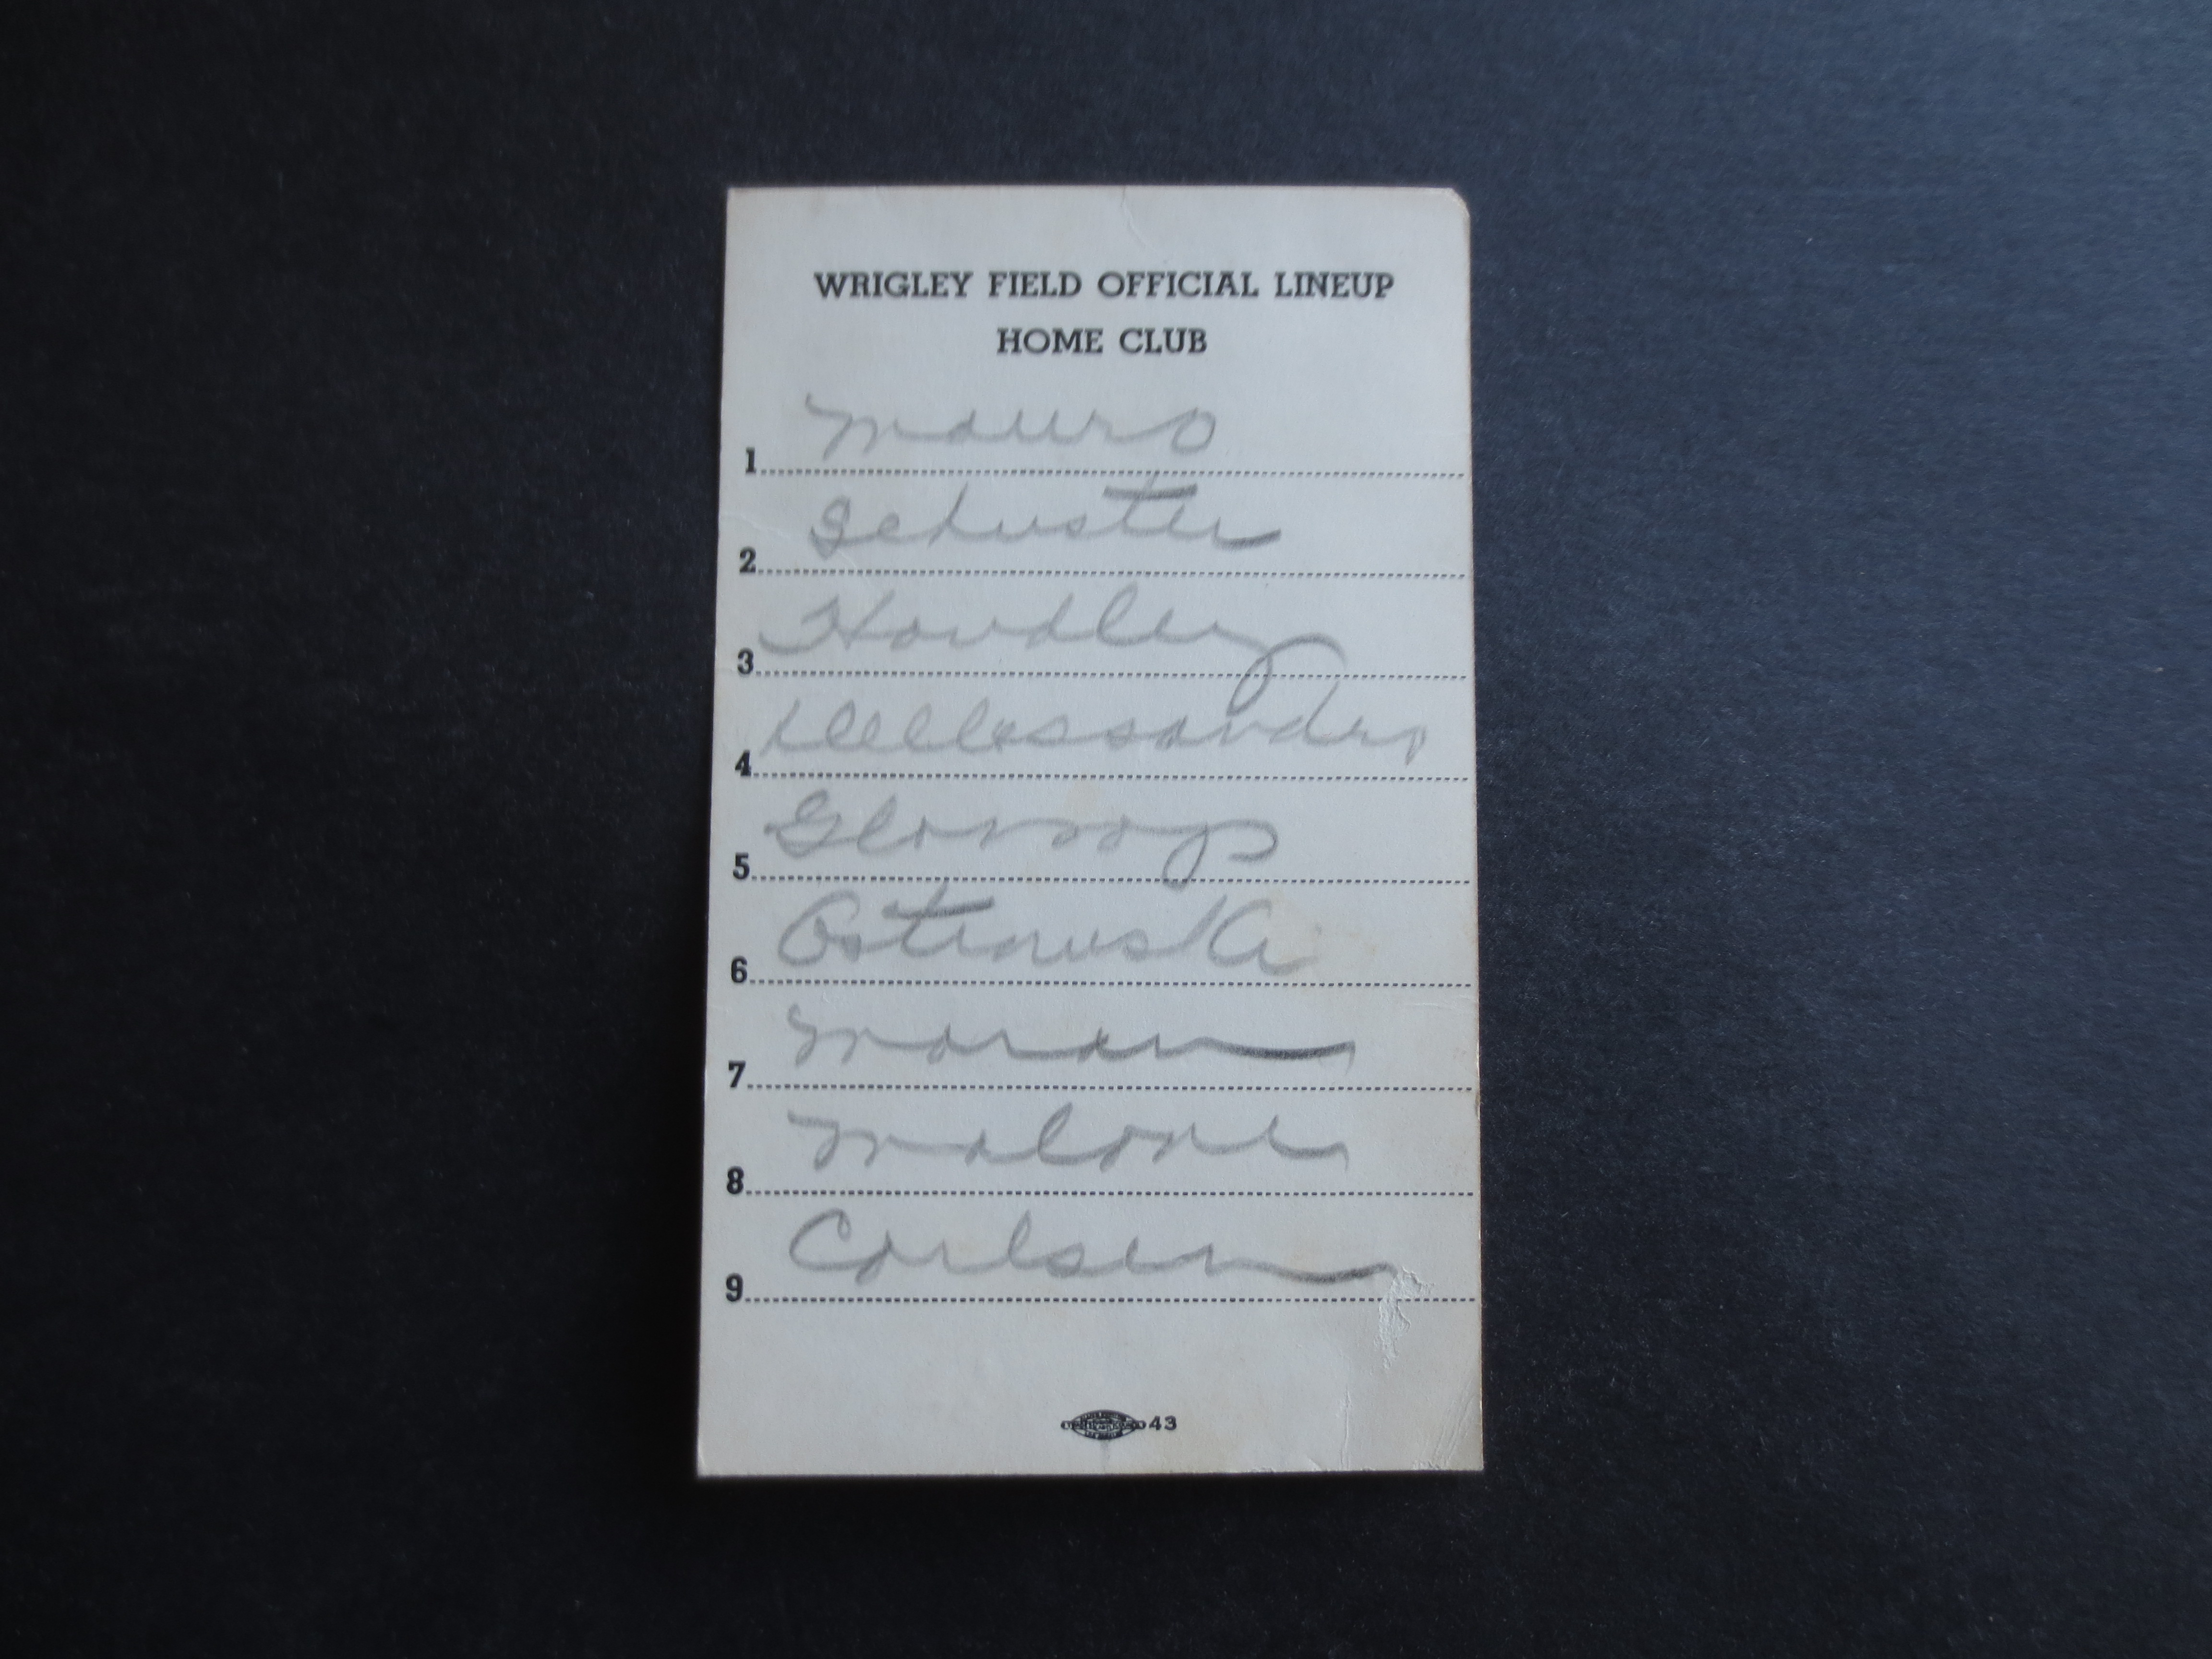 WRIGLEY FIELD OFFICIAL LINEUP
HOME CLUB
1 Mauro
2 Schuster
3 Handley
4 Dallessandro
5 Glossop
6 Ostrowski
7 Moran
8 Malone
9 Carlsen
43